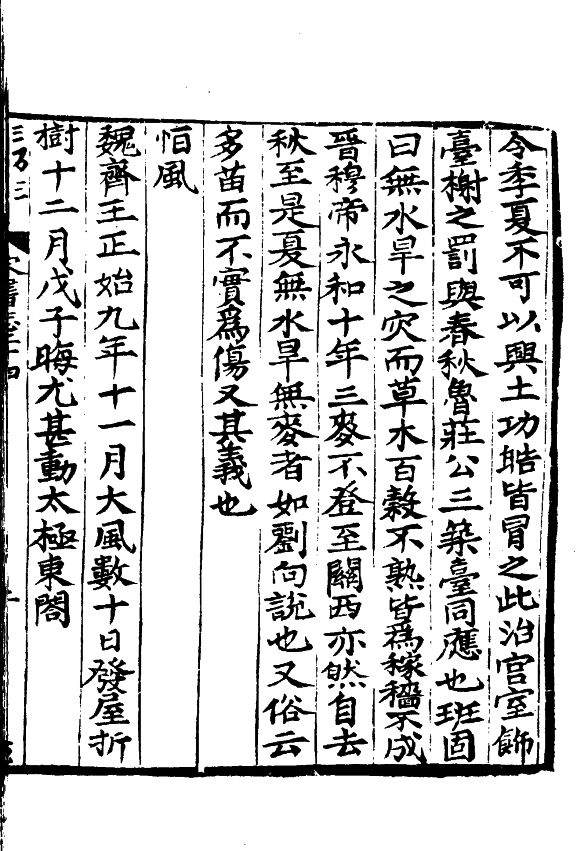 令季夏不可以興土功皓皆冒之此治宫室飾
臺榭之罰與春秋魯莊公三築臺同應也班固
曰無水旱之灾而草木百榖不熟皆爲稼穡不成
晉穆帝永和十年三麥不登至關西亦然自去
秋至是夏無水旱無麥者如劉向說也又俗云
多苗而不實爲傷又其義也
恒風
魏齊王正始九年十一月大風數十日發屋折
樹十二月戊子晦尤甚動太極東閤